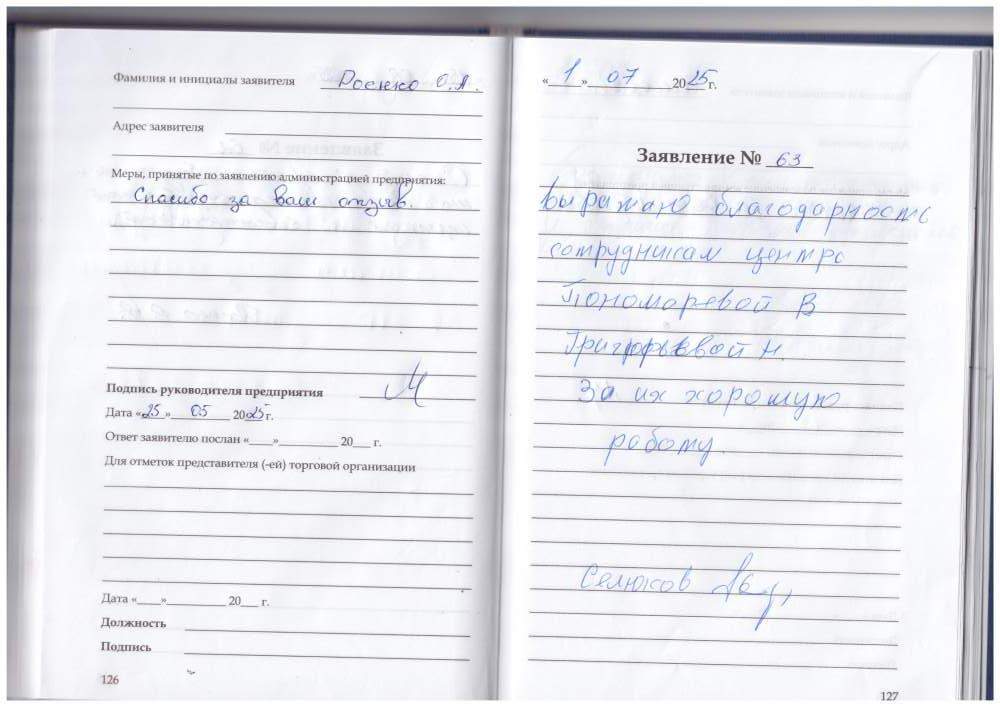 Фамилия и инициалы заявителя Роенко О.А.
Адрес заявителя
Меры, принятые по заявлению администрацией предприятия:
Спасибо за ваш отзыв.
Подпись руководителя предприятия
Дата «25» 05 2025 г.
Ответ заявителю послан «___»_________ 20___ г.
Для отметок представителя (-ей) торговой организации
Дата «___»_________ 20___ г.
Должность
Подпись
126
«1» 07 2025 г.
Заявление № 63
выражаю благодарность
сотрудникам центра
Пономаревой В
Григорьевой Н.
За их хорошую
работу.
Селюков
127